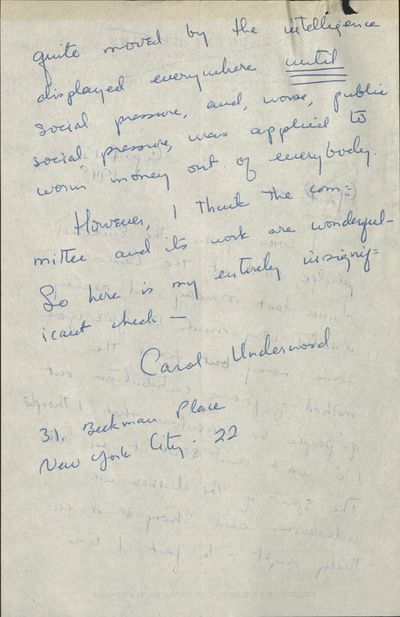 quite moved by the intelligence
displayed everywhere until
social pressure, and, worse, public
social pressure, was applied to
worm money out of everybody.
However, I think the com=
mittee and its work are wonderful-
So here is my entirely insignif=
icant check —
Carol Underwood
31 Beekman Place
New York City. 22